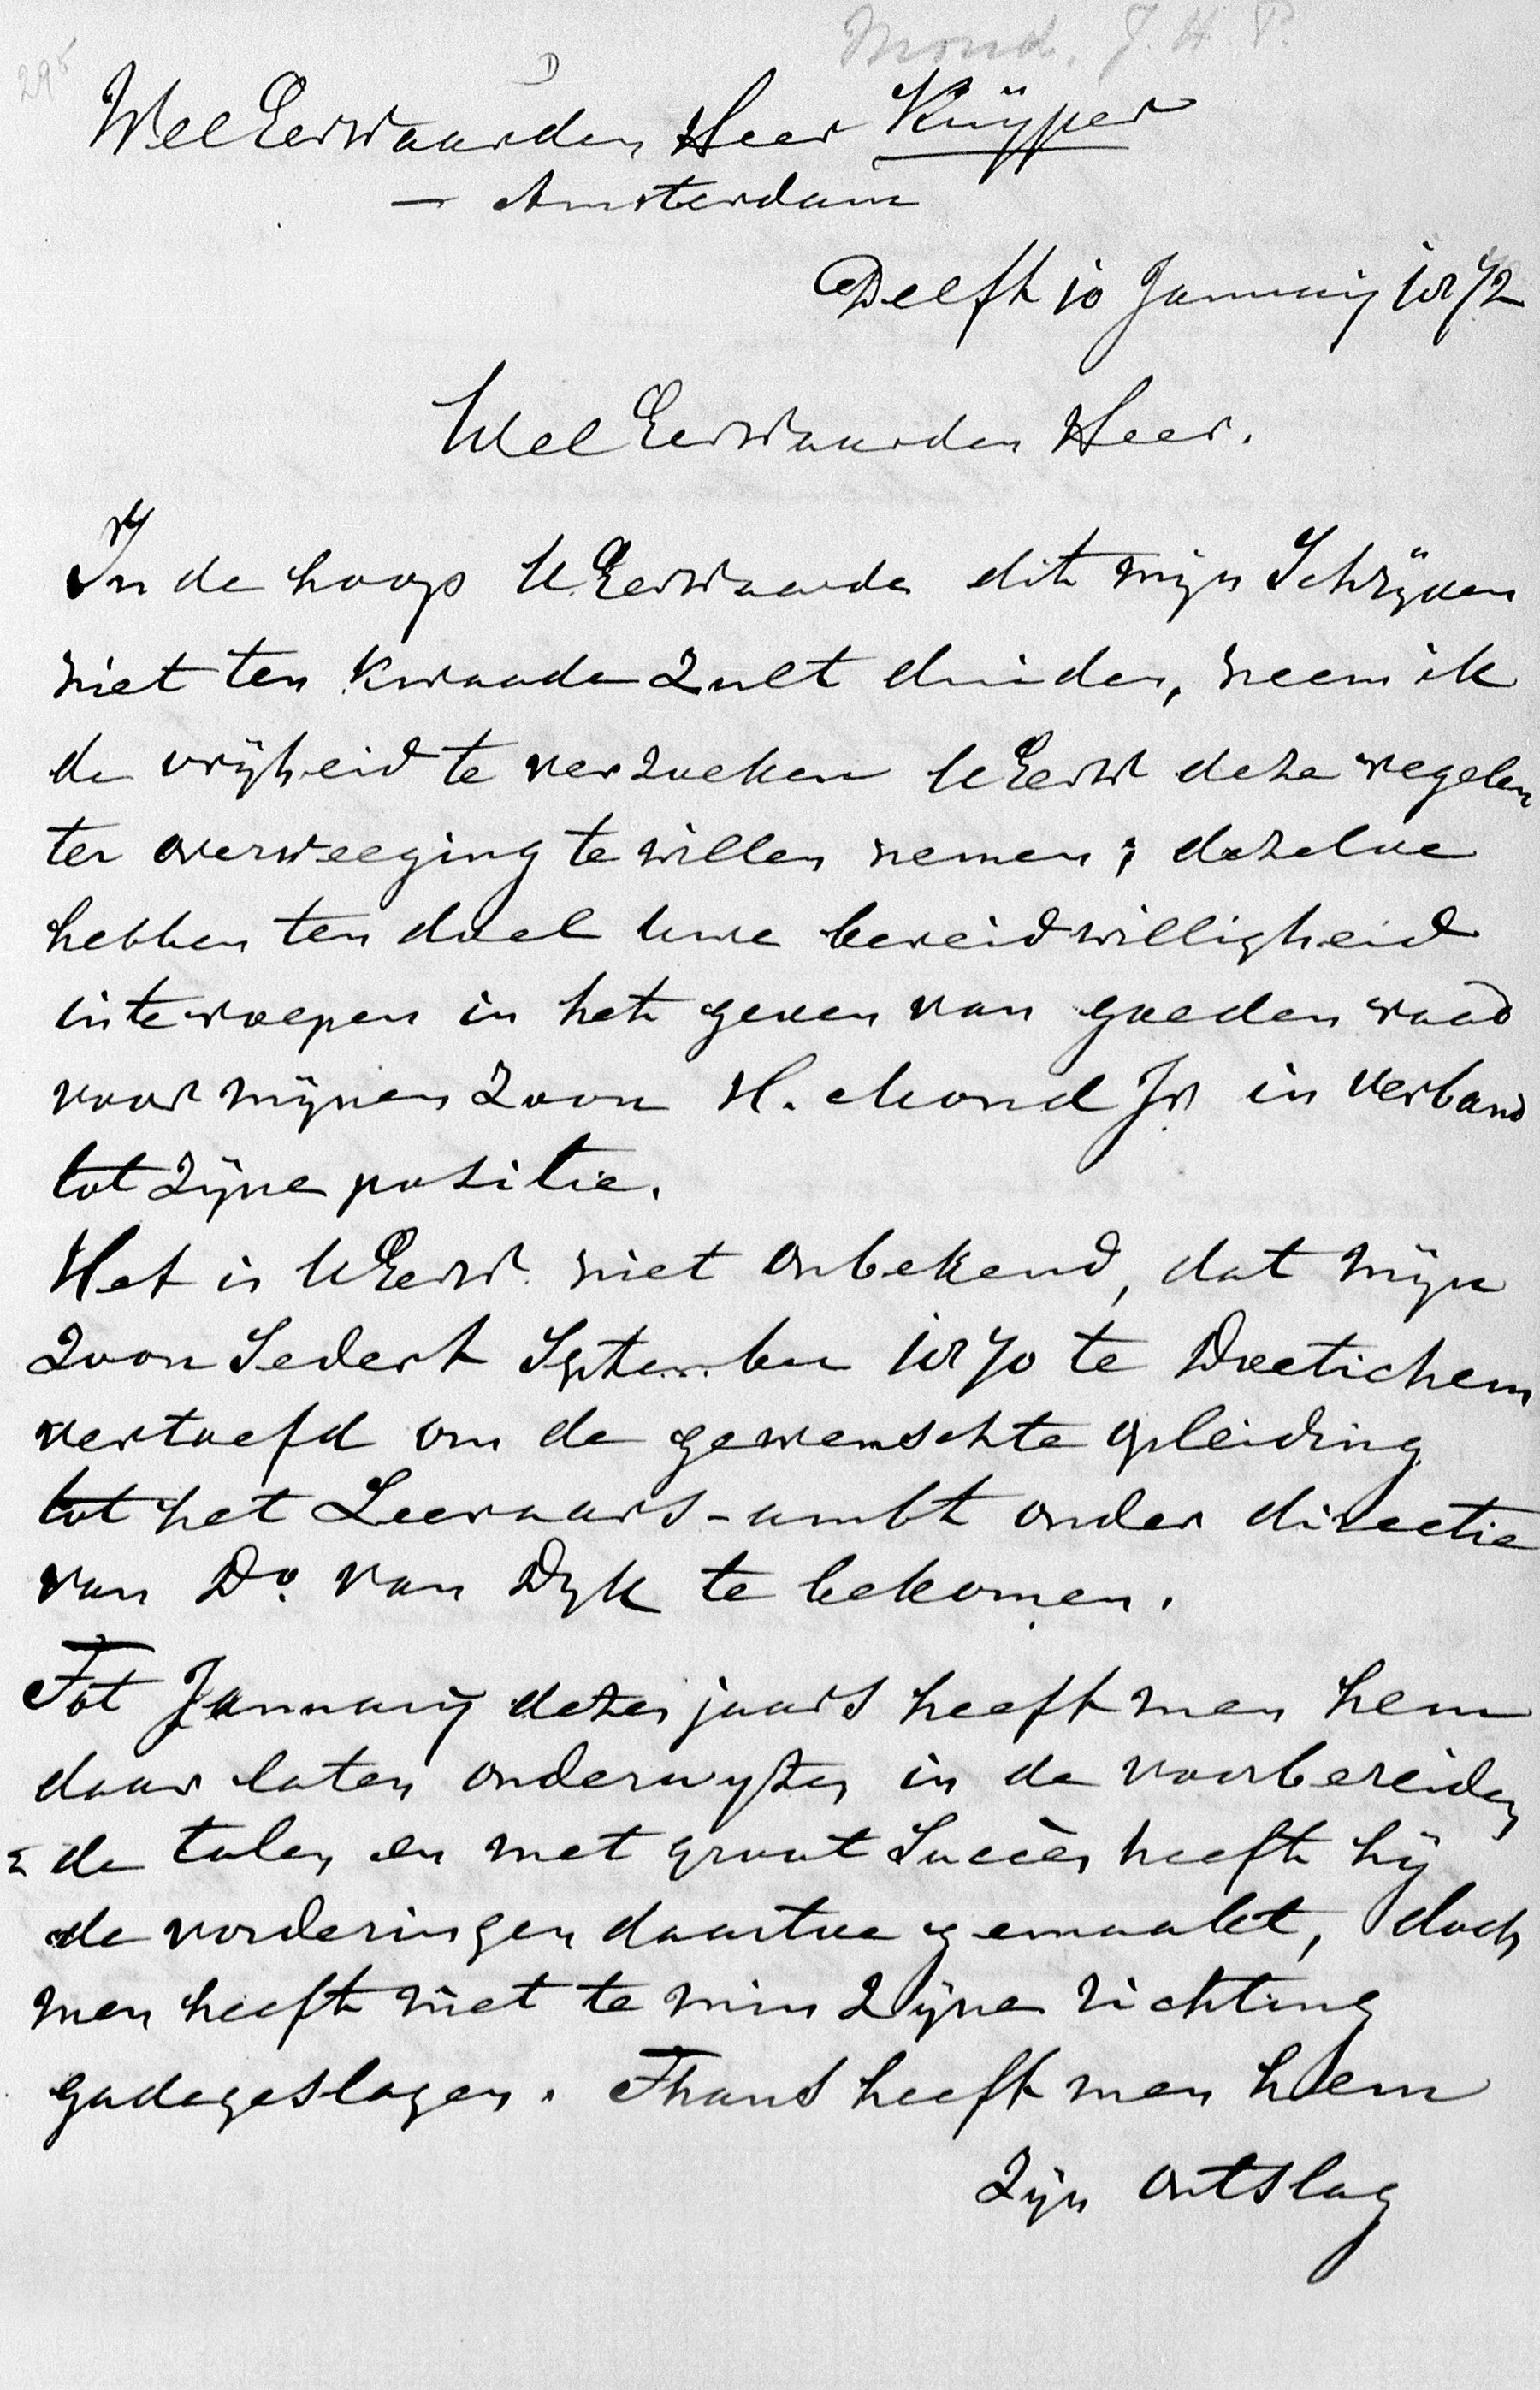 Mond. J. H. P.
295
Wel Eerwaarden Heer Kuÿper
— Amsterdam
Delft 10 Januarij 1872
Wel Eerwaarden Heer.
In de hoop UEerwaarde dit mijn Schrÿven
niet ten kwaade zult duiden, neem ik
de vrÿheid te verzoeken UEerw deze regelen
ter overweeging te willen nemen; dezelve
hebben ten doel Uwe bereidwilligheid
interoepen in het geven van goeden raad
voor mÿnen Zoon H. Mond Jr. in verband
tot zÿne positie.
Het is UEerw. niet onbekend, dat mÿn
Zoon Sedert September 1870 te Doetichem
vertoefd om de gewenschte opleiding
tot het Leeraars-ambt onder directie
van Do. van Dyk te bekomen.
Tot Januarÿ dezes jaars heeft men hem
daar laten onderwyzen in de voorbereiden
= de talen en met groot Succès heeft hÿ
de vorderingen daartoe gemaakt, doch
men heeft niet te min zÿne richting
gadegeslagen. Thans heeft men hem
zÿn ontslag